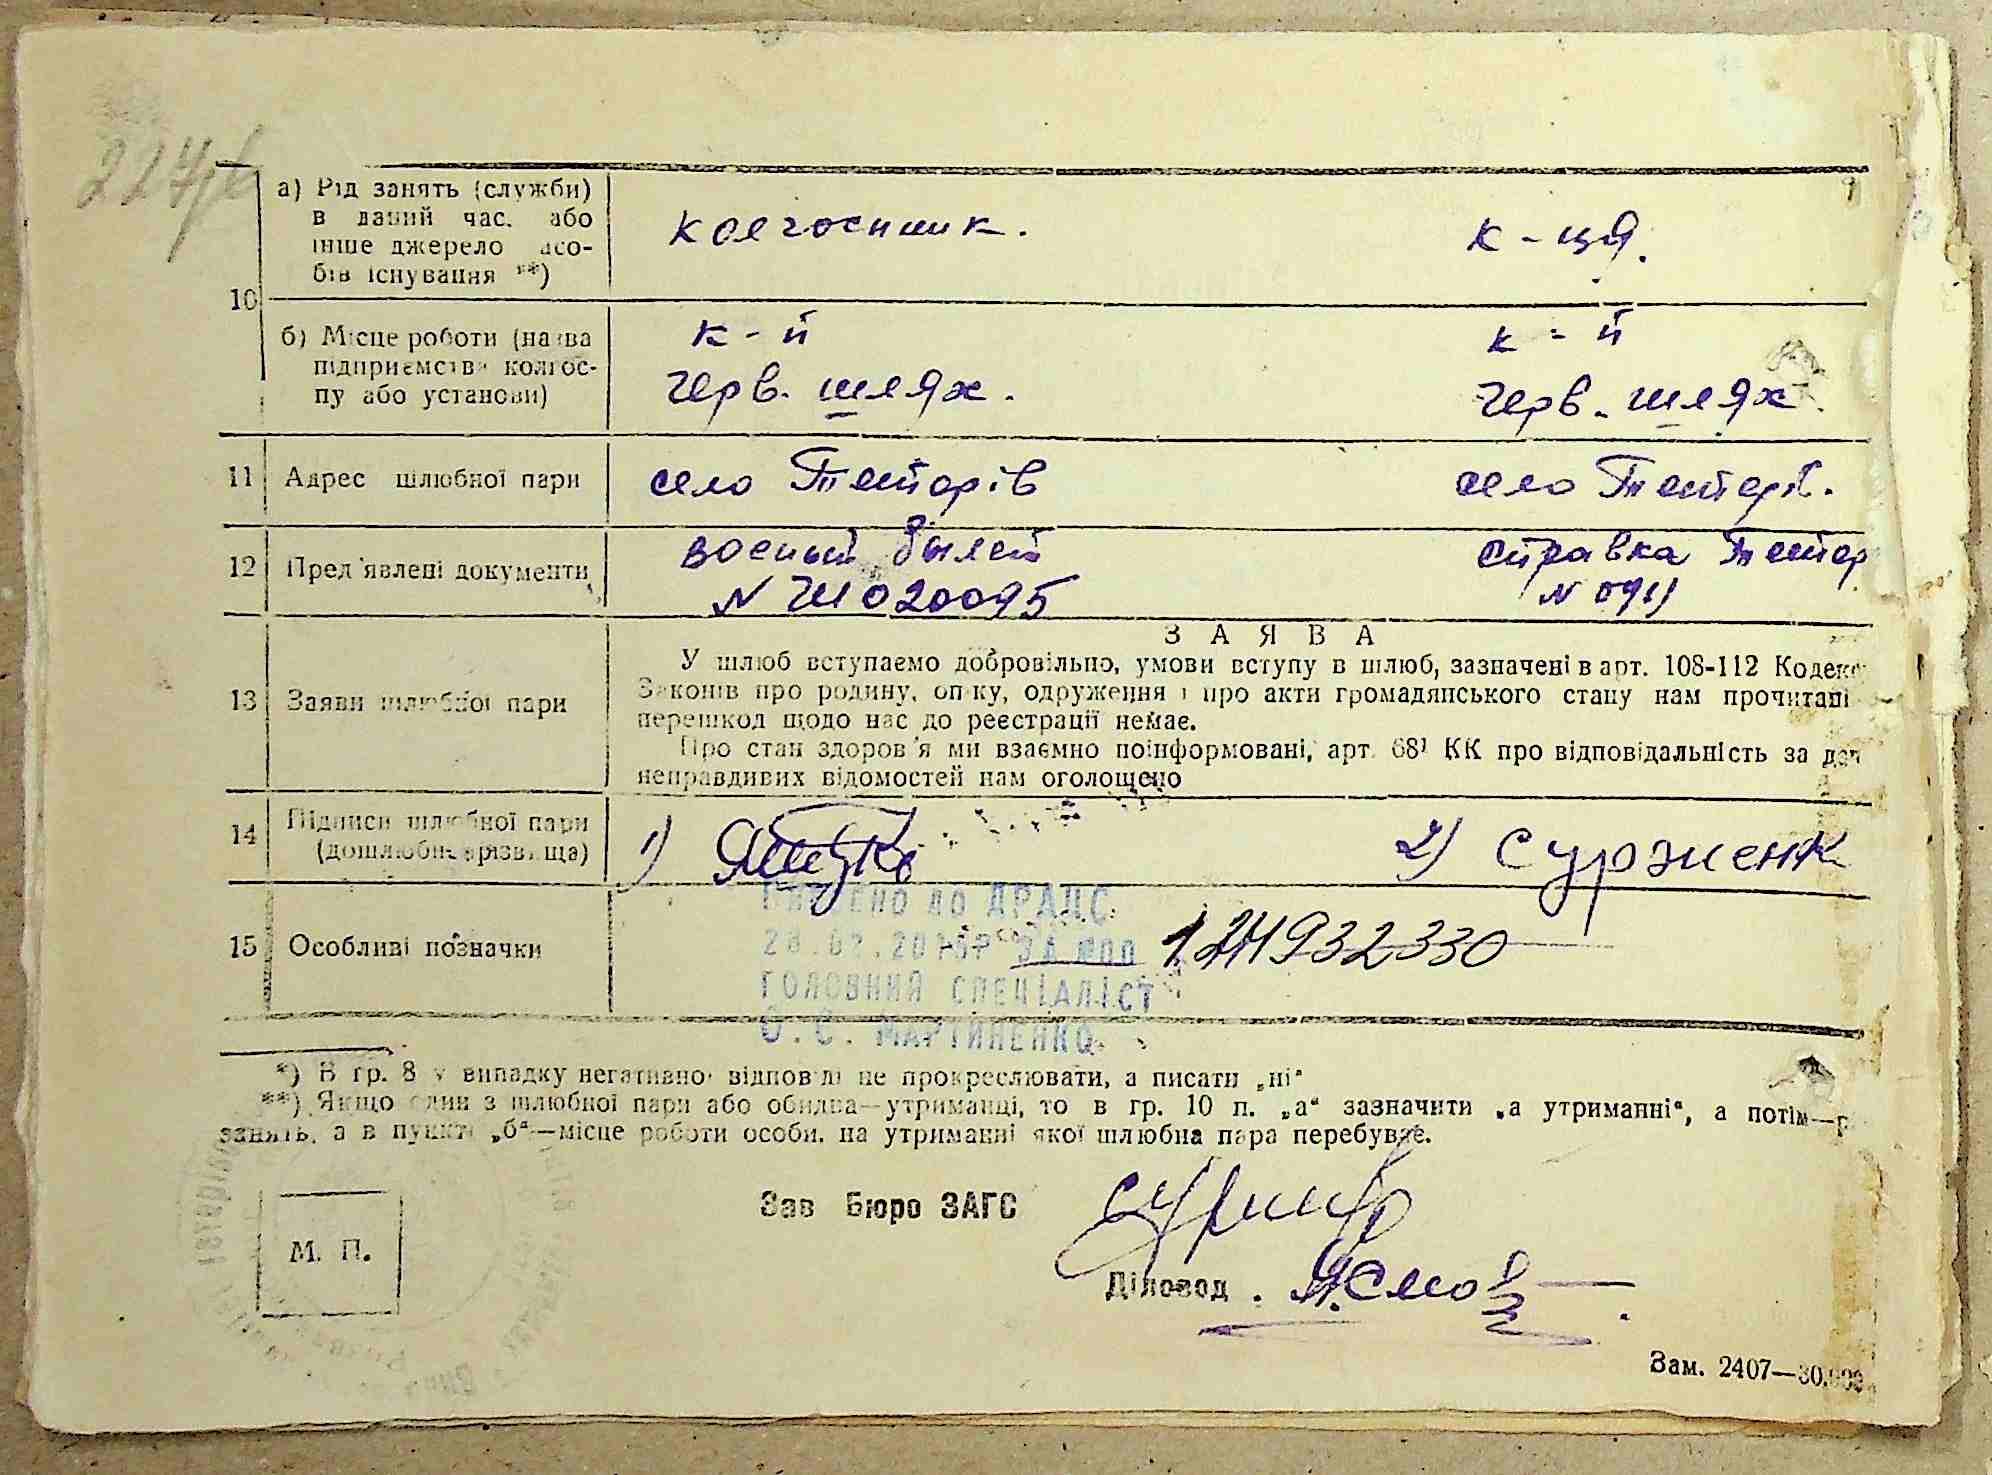 а) Рід занять (служби)
в даний час. або
інше джерело засо-
бів існування **)
колгоспник.
к-ця.
10
б) Місце роботи (назва
підприємства колгос-
пу або установи)
к-п
Черв. шлях.
к-п
Черв. шлях.
11
Адрес шлюбної пари
село Тетерів
село Тетерів.
12
Пред'явлені документи
военый былет
N ЧШ 020095
справка Тетер
13
Заяви шлюбної пари
ЗАЯВА
У шлюб вступаємо добровільно, умови вступу в шлюб, зазначені в арт. 108-112 Кодекс
Законів про родину, опіку, одруження і про акти громадянського стану нам прочитані
перешкод щодо нас до реєстрації немає.
Про стан здоров'я ми взаємно поінформовані, арт. 68¹ КК про відповідальність за дач
неправдивих відомостей нам оголошено
14
Підписи шлюбної пари
(дошлюбне прізвища)
1)
2) Сурженк
15
Особливі позначки
ВНЕСЕНО ДО ДРАЦС
ЗА №00 124932330
ГОЛОВНИЙ СПЕЦІАЛІСТ
О.С. МАРТИНЕНКО
*) В гр. 8 у випадку негативної відповіді не прокреслювати, а писати „ні"
**) Якщо один з шлюбної пари або обидва—утриманці, то в гр. 10 п. „а" зазначити „а утриманні", а потім—р
занять, а в пункті „б"—місце роботи особи, на утриманні якої шлюбна пара перебуває.
Зав Бюро ЗАГС
М. П.
Діловод
Зам. 2407—30.000